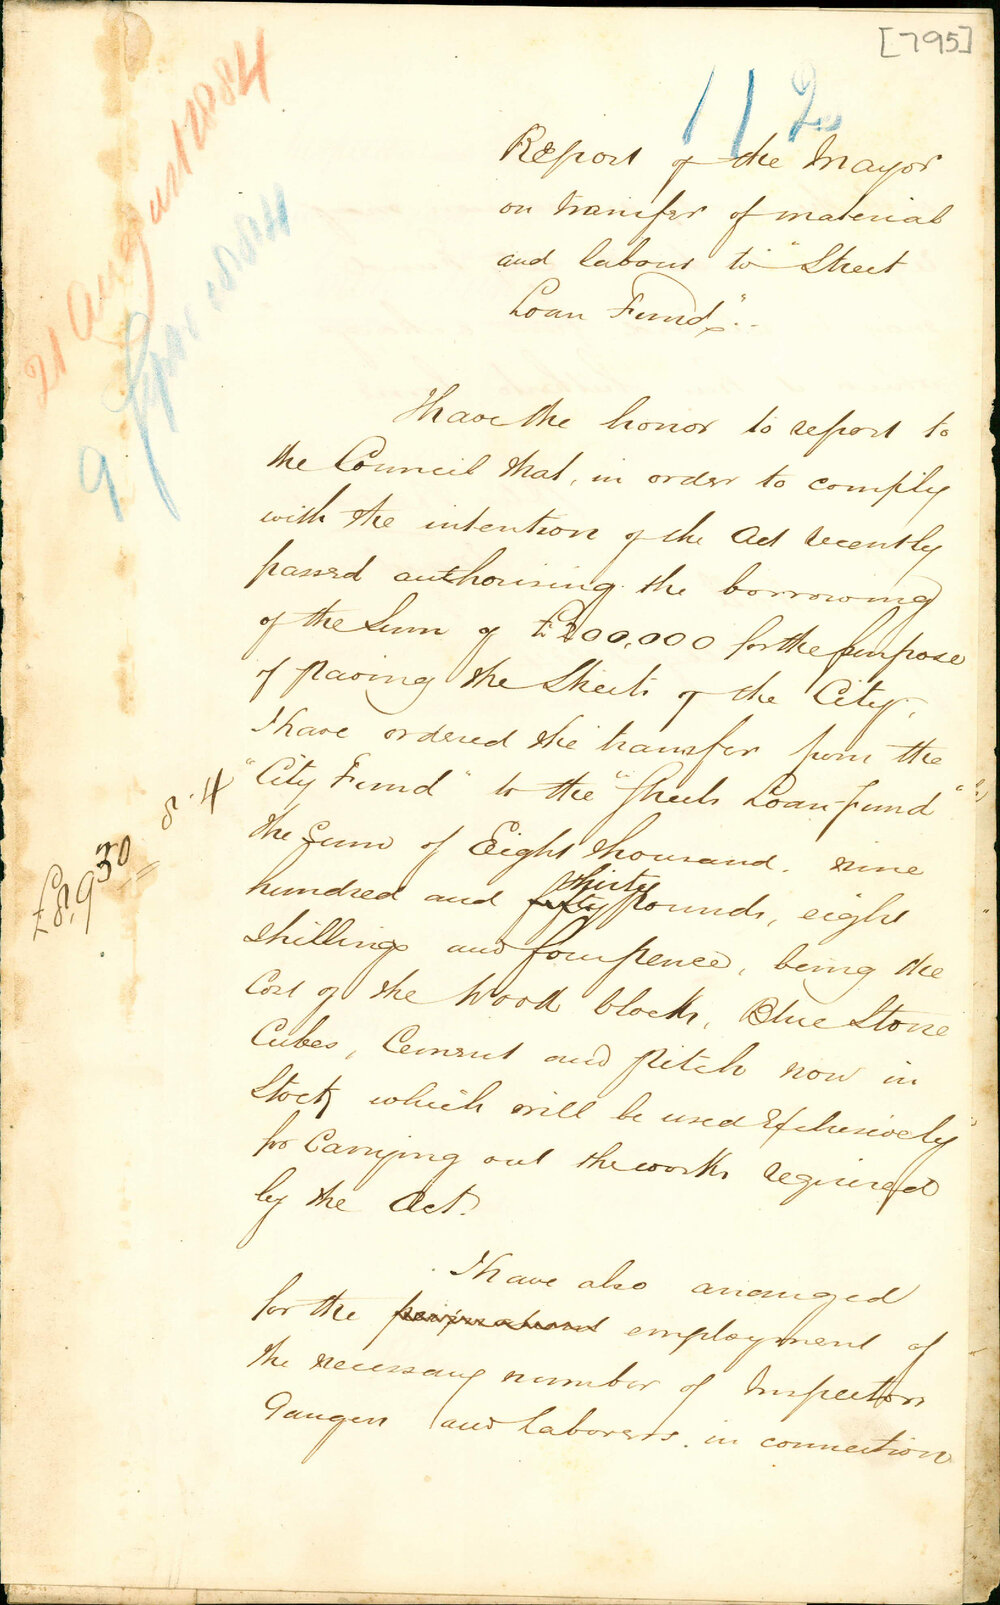 [795]
21 August 1884
112
Report of the Mayor
on transfer of material
and labour to "Street
Loan Fund".
I have the honor to report to
the Council that, in order to comply
with the intention of the Act recently
passed authorising the borrowing
of the Sum of £200,000 for the purpose
of paving the Streets of the City,
I have ordered the transfer from the
"City Fund" to the "Streets Loan Fund"
the Sum of Eight thousand, nine
thirty
hundred and fifty pounds, eight
shillings and fourpence, being the
Cost of the Wood blocks, Blue Stone
Cubes, Cement and pitch now in
Stock which will be used exclusively
for Carrying out the works required
by the Act.
£8,930 8.4
I have also arranged
for the employment of
the necessary number of Inspectors
Gangers and laborers in connection